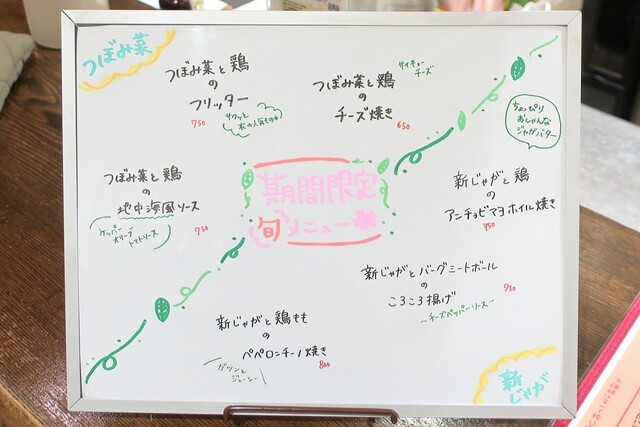 つぼみ菜
つぼみ菜と鶏
の
フリッター
750
サクッと
つぼみ菜と鶏
の
チーズ焼き
650
サイキョー
チーズ
ちょっぴり
おしゃんな
ジャガバター
つぼみ菜と鶏
の
地中海風ソース
750
ケッパー
オリーブ
トマトソース
期間限定
旬メニュー
新じゃがと鶏
の
アンチョビマヨホイル焼き
750
新じゃがとバーグミートボール
の
ころころ揚げ
750
〜チーズペッパーソース〜
新じゃがと鶏もも
の
ペペロンチーノ焼き
800
ガツンと
ジューシー
新じゃが